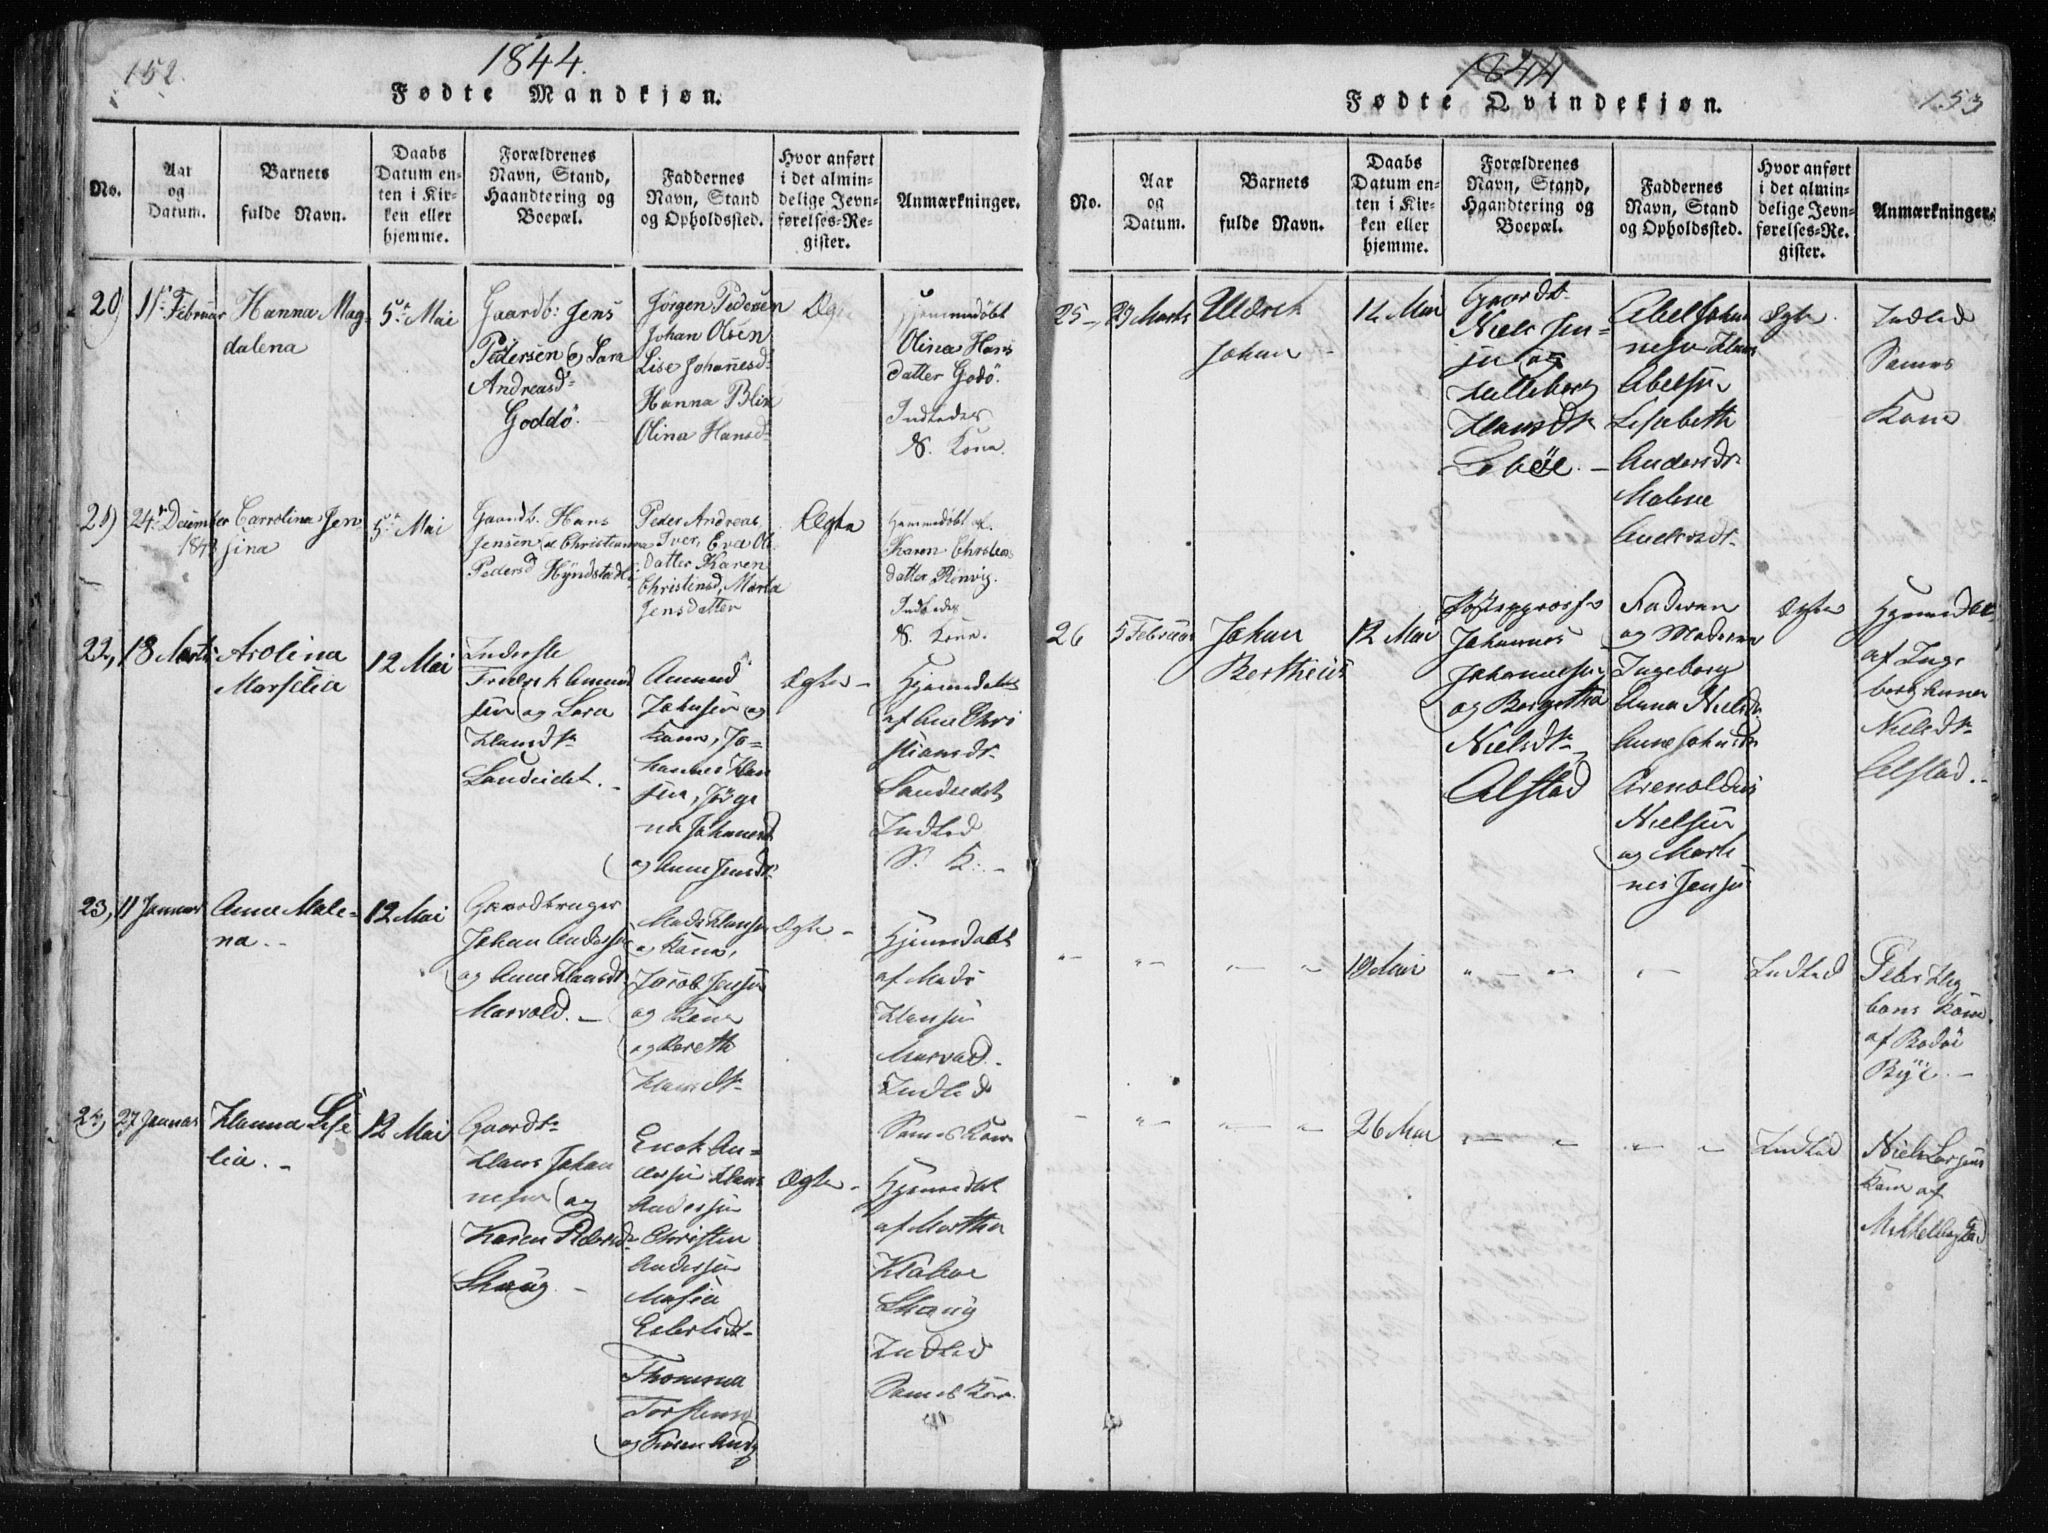 152.
1844.
Fødte Mandkjøn.
No.
Aar
og
Datum.
Barnets
fulde Navn.
Daabs
Datum en-
ten i Kir-
ken eller
hjemme.
Forældrenes
Navn, Stand,
Haandtering og
Boepæl.
Faddernes
Navn, Stand
og Opholdssted.
Hvor anført
i det almin-
delige Jevn-
førelses-Re-
gister.
Anmærkninger.
20)
11te Februar
Hanna Mag-
dalena
5te Mai
Gaardb: Jens
Pedersen og Sara
Andreasd
Goddø.
Jörgen Pedersen
Johan Olsen
Lise Johanesd
Hanna Blix
Olina Hansd
Ægte
Hjemmedöbt
Olina Hans
datter Godö.
Indledes
S. Kone.
21)
24de December
1843
Carrolina Jen-
sina
5te Mai
Gaardb. Hans
Jensen og Christianna
Pedersd
Peder Andreas,
Iver, Eva Ols
datter Karen
Christensd, Marta
Jensdatter
Ægte
Hjemmedöbt af
Karen Christens
datter Rönvig.
Indledes
S. Kone.
22,
18 Marts
Arolina
Marselia
12 Mai
Inderste
Fredrik Amund
sen og Sara
Hansdtr
Sandeidet.
Amund
Johnsen og
Kone, Jo-
hannes Han
sen, Jörgi
na Johannesd
og Anne Jensdtr
Ægte
Hjemedøbt
af Ane Chri
stiansdtr
Sandeidet
Indled
S. K.
23,
11 Januar
Anne Male-
na.
12 Mai
Gaardbruger
Johan Anderse
og Anne Hansdt
Marvold.
Mads Hansen
og Kone,
Jacob Jensen
og Kone
og Bereth
Hansdtr
Ægte
Hjemedøbt
af Mads
Hansen
Marvold.
Indled
Sames Kone
24,
27 Januar
Hanna Lese
lia.
12 Mai
Gaardb
Hans Johan
nesen og
Karen Pedersd
Skaug
Enok An-
dersen Hans
Andersen
Christen
Andersen
Masia
Thomma
Torstens
Ægte
Hjemedøbt
af Martha
Skaug
Indled
Sames Kone.
1844
153
Fødte Qvindekjøn.
No.
Aar
og
Datum.
Barnets
fulde Navn.
Daabs
Datum en-
ten i Kir-
ken eller
hjemme.
Forældrenes
Navn, Stand,
Haandtering og
Boepæl.
Faddernes
Navn, Stand
og Opholdssted.
Hvor anført
i det almin-
delige Jevn-
førelses-Re-
gister.
Anmærkninger.
25
27 Marts
Uldrik
Johan
12 Mai
Gaardb
Niels Jen-
sen og
Helleborg
Hansdtr
Løbøe.
Abel Johan
nesen Hans
Abelsen
Lisabeth
Andersdtr
Malene
Andersdtr
Ægte.
Indled
Sames
Kone
26
5 Februar
Johan
Bertheus
12 Mai
Johannes
Johannesen
og Bergitha
Nielsdtr
Alstad
Faderen
og Moderen
Ingeborg
Anna Nielsd
Anne Johnsdtr
Arenoldus
Nielsen
og Marti
nus Jensen
Ægte
Hjemedøbt
af Inge
borg Anna
Nielsdtr
Alstad.
" — " — " — "
19 Mai
" — " — " —
Indled
Peter Hug
bons Kone
af Bodøe
Bye.
" — " — "
26 Mai
" — " — " — "
Indled
Niels Larsens
Kone af